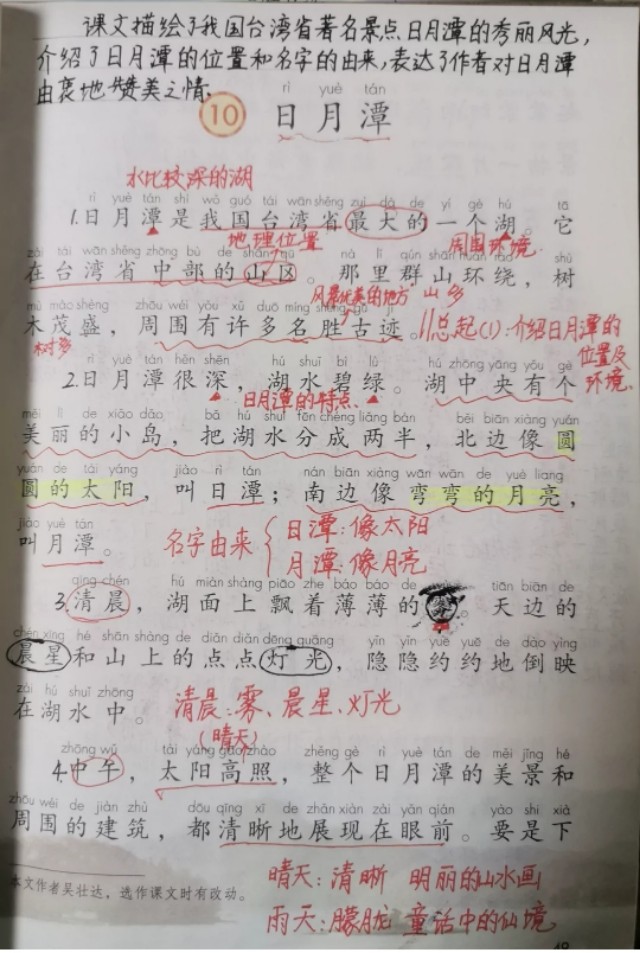 课文描绘了我国台湾省著名景点日月潭的秀丽风光,
介绍了日月潭的位置和名字的由来,表达了作者对日月潭
由衷地赞美之情.
rì yuè tán
10 日月潭
水比较深的湖
rì yuè tán shì wǒ guó tái wān shěng zuì dà de yí gè hú tā
1.日月潭是我国台湾省最大的一个湖。它
地理位置 周围环境
zài tái wān shěng zhōng bù de shān qū nà lǐ qún shān huán rào shù
在台湾省中部的山区。那里群山环绕,树
风景优美的地方 山多
mù mào shèng zhōu wéi yǒu xǔ duō míng shèng gǔ jì
木茂盛,周围有许多名胜古迹。∥总起(1):介绍日月潭的
树多 位置及
rì yuè tán hěn shēn hú shuǐ bì lǜ hú zhōng yāng yǒu gè
2.日月潭很深,湖水碧绿。湖中央有个 环境.
日月潭的特点.
měi lì de xiǎo dǎo bǎ hú shuǐ fēn chéng liǎng bàn běi biān xiàng yuán
美丽的小岛,把湖水分成两半,北边像圆
yuán de tài yáng jiào rì tán nán biān xiàng wān wān de yuè liang
圆的太阳,叫日潭;南边像弯弯的月亮,
jiào yuè tán
叫月潭。 名字由来 { 日潭:像太阳
月潭:像月亮
qīng chén hú miàn shàng piāo zhe báo báo de tiān biān de
3.清晨,湖面上飘着薄薄的雾。天边的
chén xīng hé shān shàng de diǎn diǎn dēng guāng yǐn yǐn yuē yuē de dào yìng
晨星和山上的点点灯光,隐隐约约地倒映
zài hú shuǐ zhōng
在湖水中。 清晨:雾、晨星、灯光
(晴天)
zhōng wǔ tài yáng gāo zhào zhěng gè rì yuè tán de měi jǐng hé
4.中午,太阳高照,整个日月潭的美景和
zhōu wéi de jiàn zhù dōu qīng xī de zhǎn xiàn zài yǎn qián yào shi xià
周围的建筑,都清晰地展现在眼前。要是下
晴天:清晰 明丽的山水画
本文作者吴壮达,选作课文时有改动。
雨天:朦胧 童话中的仙境